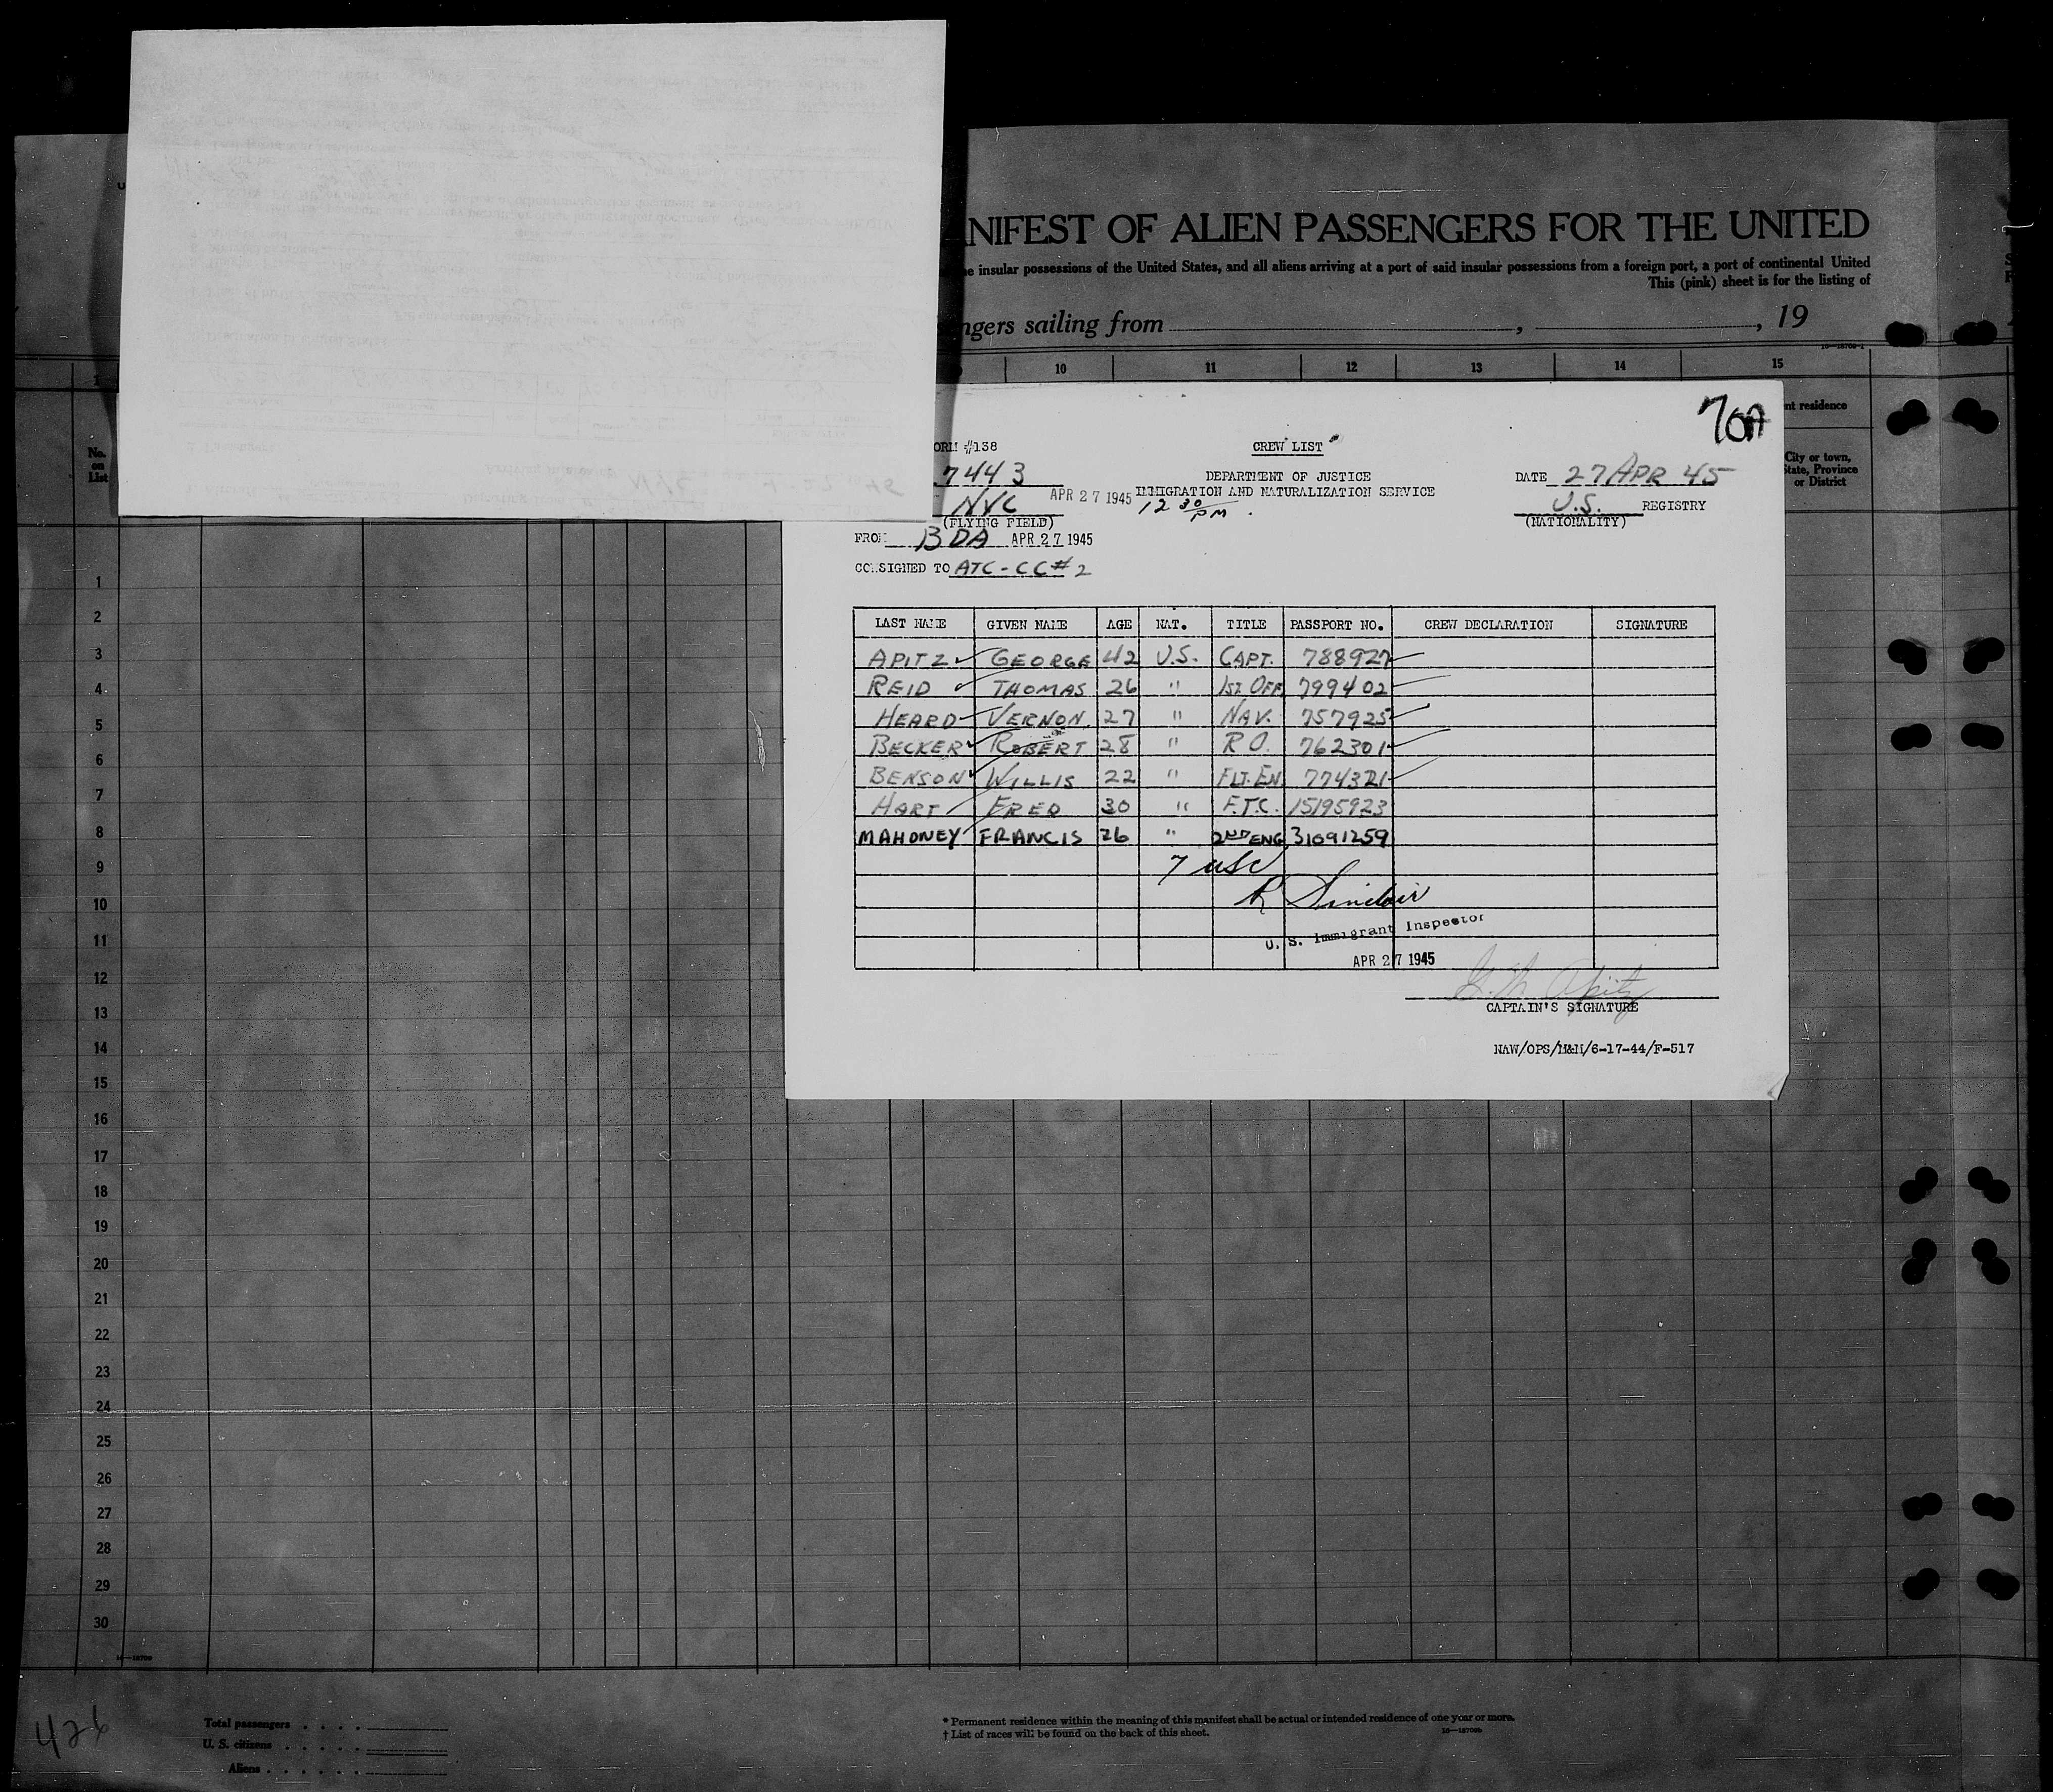 NIFEST OF ALIEN PASSENGERS FOR THE UNITED
e insular possessions of the United States, and all aliens arriving at a port of said insular possessions from a foreign port, a port of continental United
This (pink) sheet is for the listing of
ngers sailing from , , 19
10 11 12 13 14 15
nt residence
City or town, State, Province or District
No. on List
70A
ORM #138 CREW LIST
7443 DEPARTMENT OF JUSTICE DATE 27 APR 45
NYC APR 27 1945 IMMIGRATION AND NATURALIZATION SERVICE U.S. REGISTRY
(FLYING FIELD) 12 30 PM (NATIONALITY)
FROM BDA APR 27 1945
CONSIGNED TO ATC-CC#2
LAST NAME GIVEN NAME AGE NAT. TITLE PASSPORT NO. CREW DECLARATION SIGNATURE
APITZ GEORGE 42 U.S. CAPT. 788927
REID THOMAS 26 " 1ST. OFF. 799402
HEARD VERNON 27 " NAV. 757925
BECKER ROBERT 28 " R O. 762301
BENSON WILLIS 22 " FLT. EN. 774321
HART FRED 30 " F.T.C. 15195923
MAHONEY FRANCIS 26 " 2ND ENG 31091259
7 USC
R Sinclair
U. S. Immigrant Inspector
APR 27 1945
G. M. Apitz
CAPTAIN'S SIGNATURE
NAW/OPS/M&M/6-17-44/F-517
1
2
3
4
5
6
7
8
9
10
11
12
13
14
15
16
17
18
19
20
21
22
23
24
25
26
27
28
29
30
426
Total passengers . . . .
U. S. citizens . . . . .
Aliens . . . . . .
* Permanent residence within the meaning of this manifest shall be actual or intended residence of one year or more.
† List of races will be found on the back of this sheet.